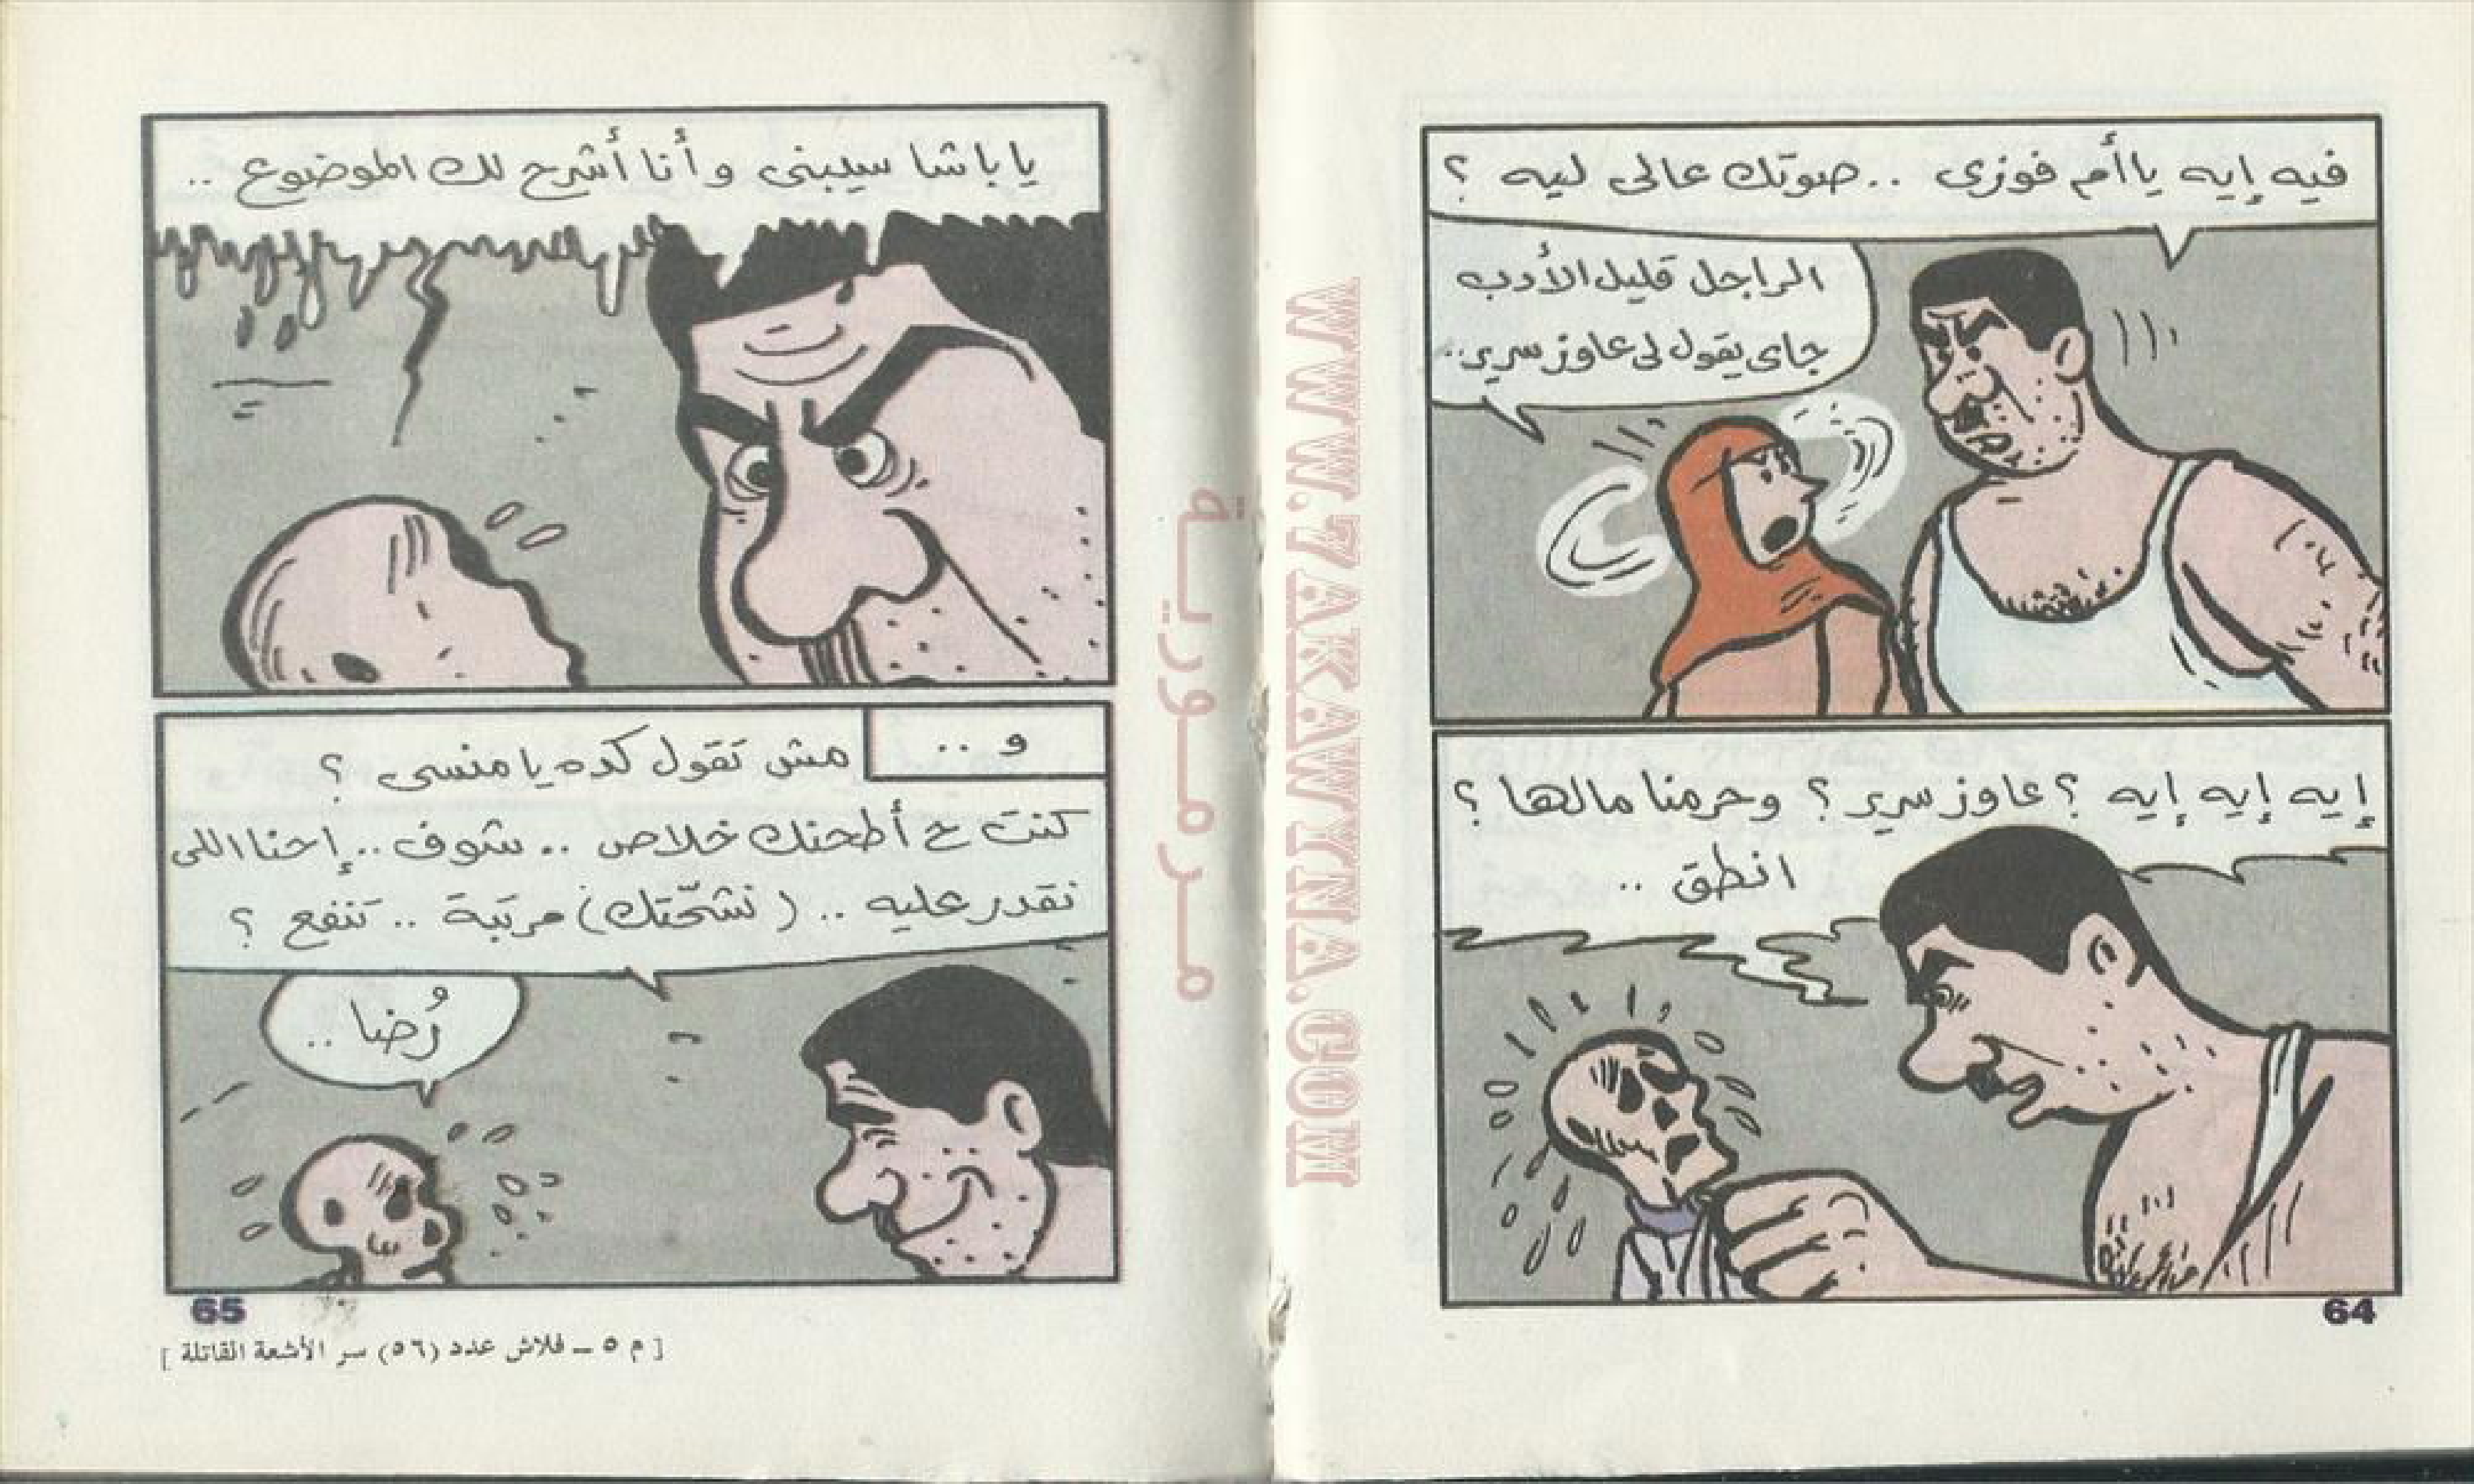 فيه إيه ياأم فوزى ..صوتك عالى ليه ؟
الراجل قليل الأدب
جاى يقول لى عاوز سرير..
إيه إيه إيه ؟ عاوز سرير ؟ وحرمنا مالها ؟
انطق ..
64
يا باشا سيبنى وأنا أشرح لك الموضوع ..
و ..
مش تقول كده يا منسى ؟
كنت ح أطحنك خلاص .. شوف .. إحنا اللى
نقدر عليه .. ( نشحّتك ) مرتبة .. تنفع ؟
رُضا ..
65
[ م ٥ ــ فلاش عدد (٥٦) سر الأشعة القاتلة ]
مرمورية
WWW.7AKAWYINA.COM